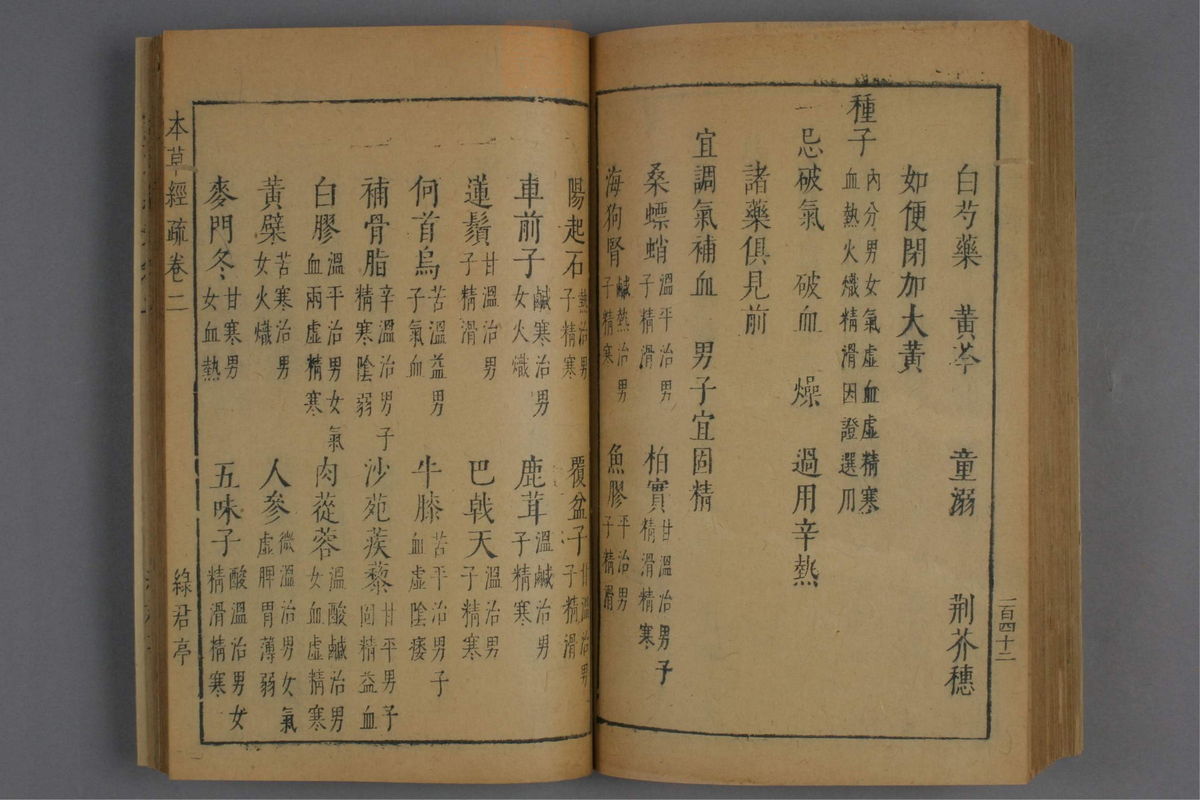 白芍藥 黃芩 童溺 荆芥穗
如便閉加大黃
種子 內分男女氣虛血虛精寒血熱火熾精滑因證選用
忌破氣 破血 燥 過用辛熱
諸藥俱見前
宜調氣補血 男子宜固精
桑螵蛸 溫平治男子精滑 柏實 甘溫治男子精滑精寒
海狗腎 鹹熱治男子精寒 魚膠 平治男子精滑
一百四十二
陽起石 熱治男子精寒 覆盆子 甘溫治男子精滑
車前子 鹹寒治男女火熾 鹿茸 溫鹹治男子精寒
蓮鬚 甘溫治男子精滑 巴戟天 溫治男子精寒
何首烏 苦溫益男子氣血 牛膝 苦平治男子血虛陰痿
補骨脂 辛溫治男子精寒陰弱 沙苑蒺藜 甘平男子固精益血
白膠 溫平治男女氣血兩虛精寒 肉蓯蓉 溫酸鹹治男女血虛精寒
黃蘗 苦寒治男女火熾 人參 微溫治男女氣虛脾胃薄弱
麥門冬 甘寒男女血熱 五味子 酸溫治男女精滑精寒
本草經疏卷二
綠君亭